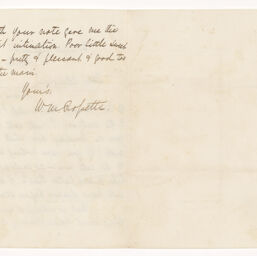 your note gave me the
intimation. Poor little
– pretty & pleasant & good to
main
Yours,
W M Rossetti.